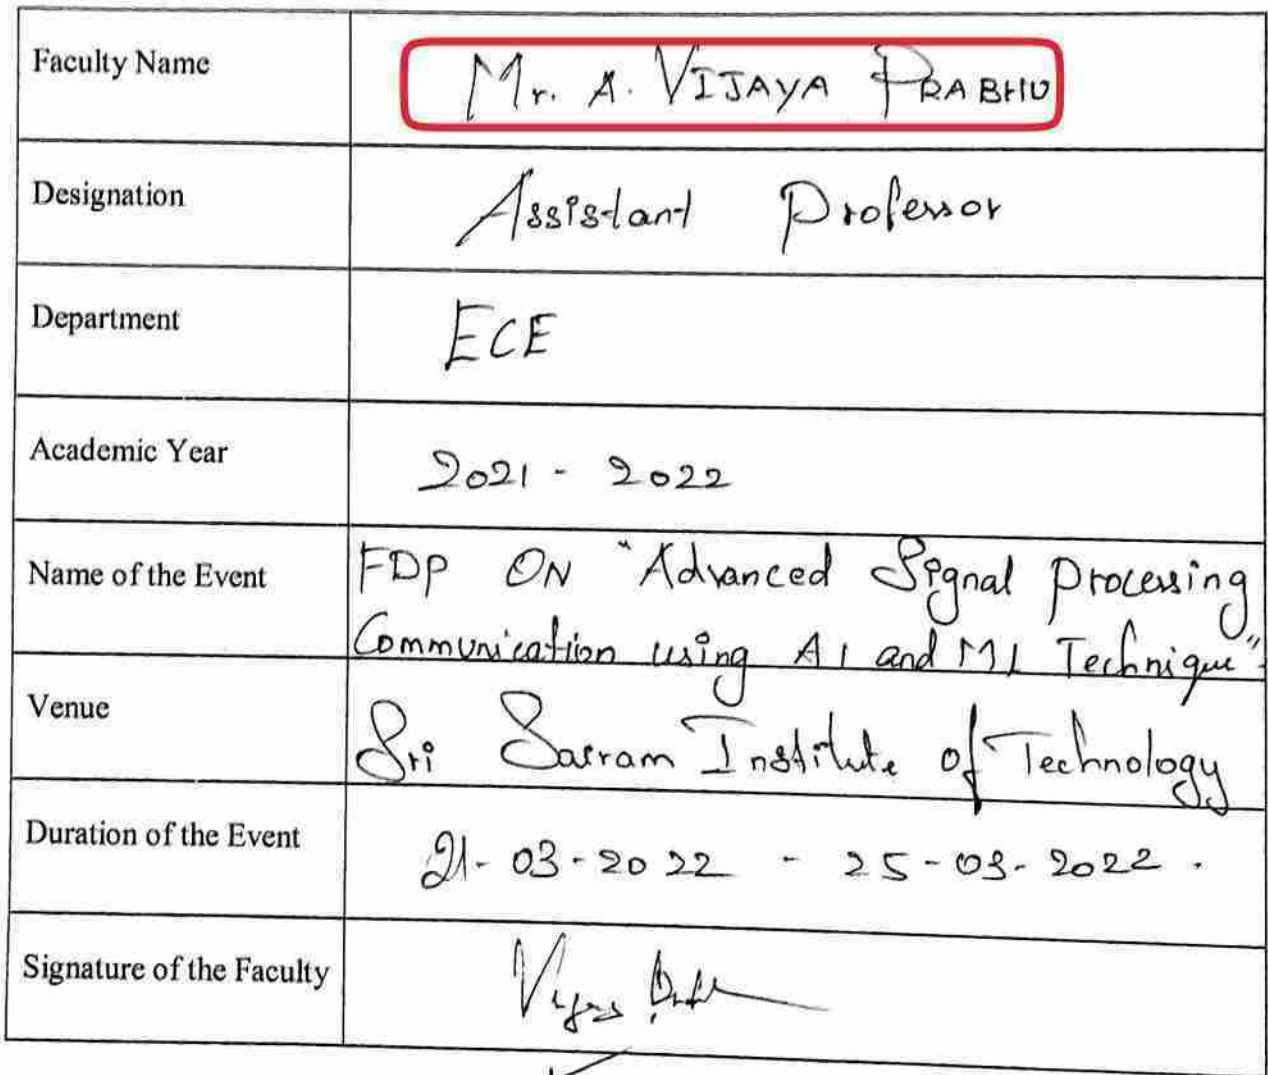 Faculty Name Mr. A. VIJAYA PRABHU
Designation Assistant Professor
Department ECE
Academic Year 2021 - 2022
Name of the Event FDP ON "Advanced Signal Processing
Communication using AI and ML Technique".
Venue Sri Sairam Institute of Technology
Duration of the Event 21-03-2022 - 25-03-2022.
Signature of the Faculty Vijaya